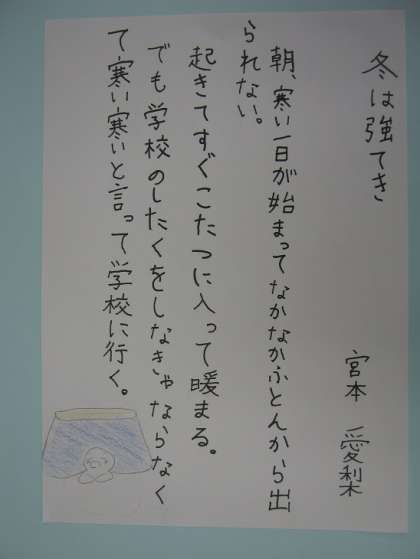 冬は強てき
宮本 愛梨
朝、寒い一日が始まってなかなかふとんから出
られない。
起きてすぐこたつに入って暖まる。
でも学校のしたくをしなきゃならなく
て寒い寒いと言って学校に行く。